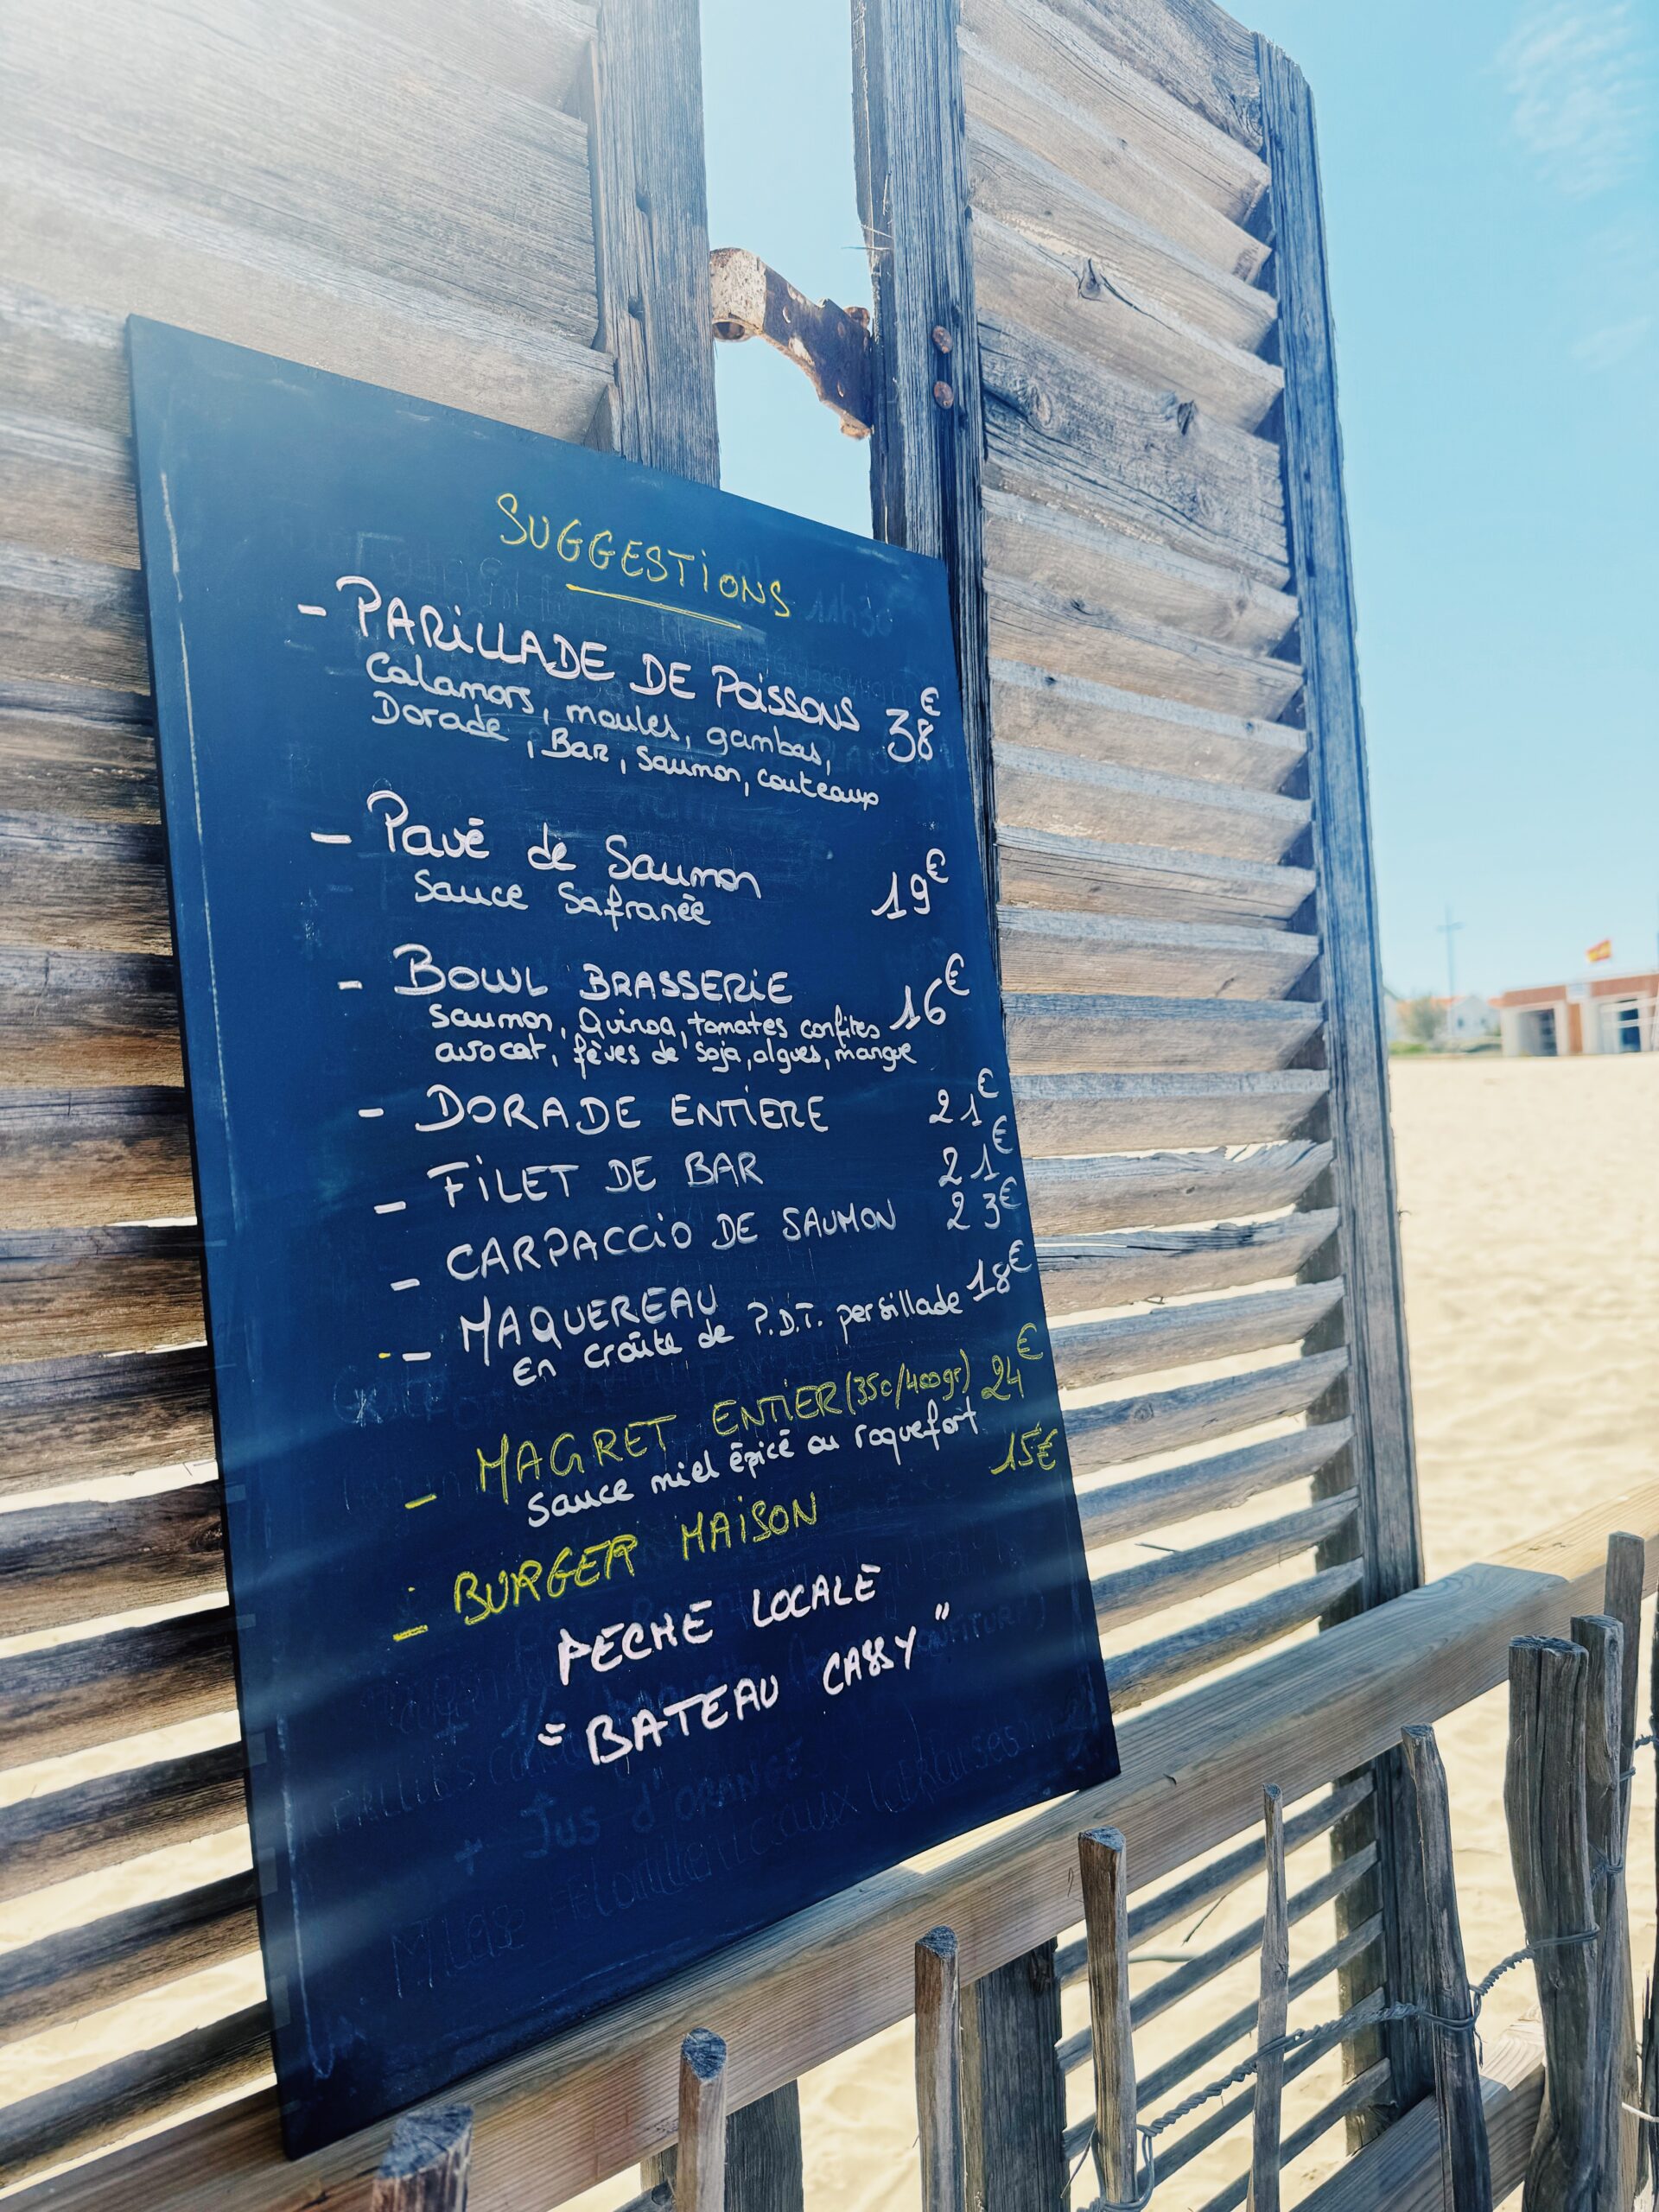 SUGGESTiONS
- PARiLLADE DE POiSSONS 38€
Calamars, moules, gambas,
Dorade, BAR, Saumon, couteaux
- Pavé de Saumon 19€
Sauce Safranée
- BOWL BRASSERiE 16€
Saumon, Quinoa, tomates confites
avocat, fèves de soja, algues, mangue
- DORADE ENTiERE 21€
- FiLET DE BAR 21€
- CARPACCiO DE SAUMON 23€
- MAQUEREAU 18€
En croûte de P.D.T. persillade
- MAGRET ENTiER (350/400gr) 24€
Sauce miel épicé ou roquefort
- BURGER MAiSON 15€
PECHE LOCALE
"BATEAU CASSY"
+ Jus d'ORANGE